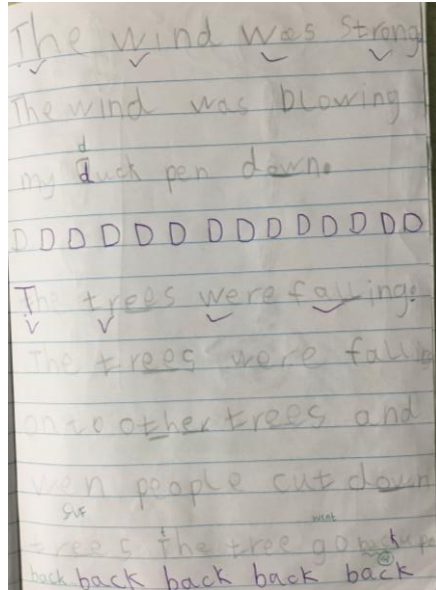 The wind was strong
The wind was blowing
d
my duck pen down.
D D D D D D D D D D D D D D
The trees were falling.
The trees were fallin
onto other trees and
wen people cut down
went
trees the tree go back up
back back back back back